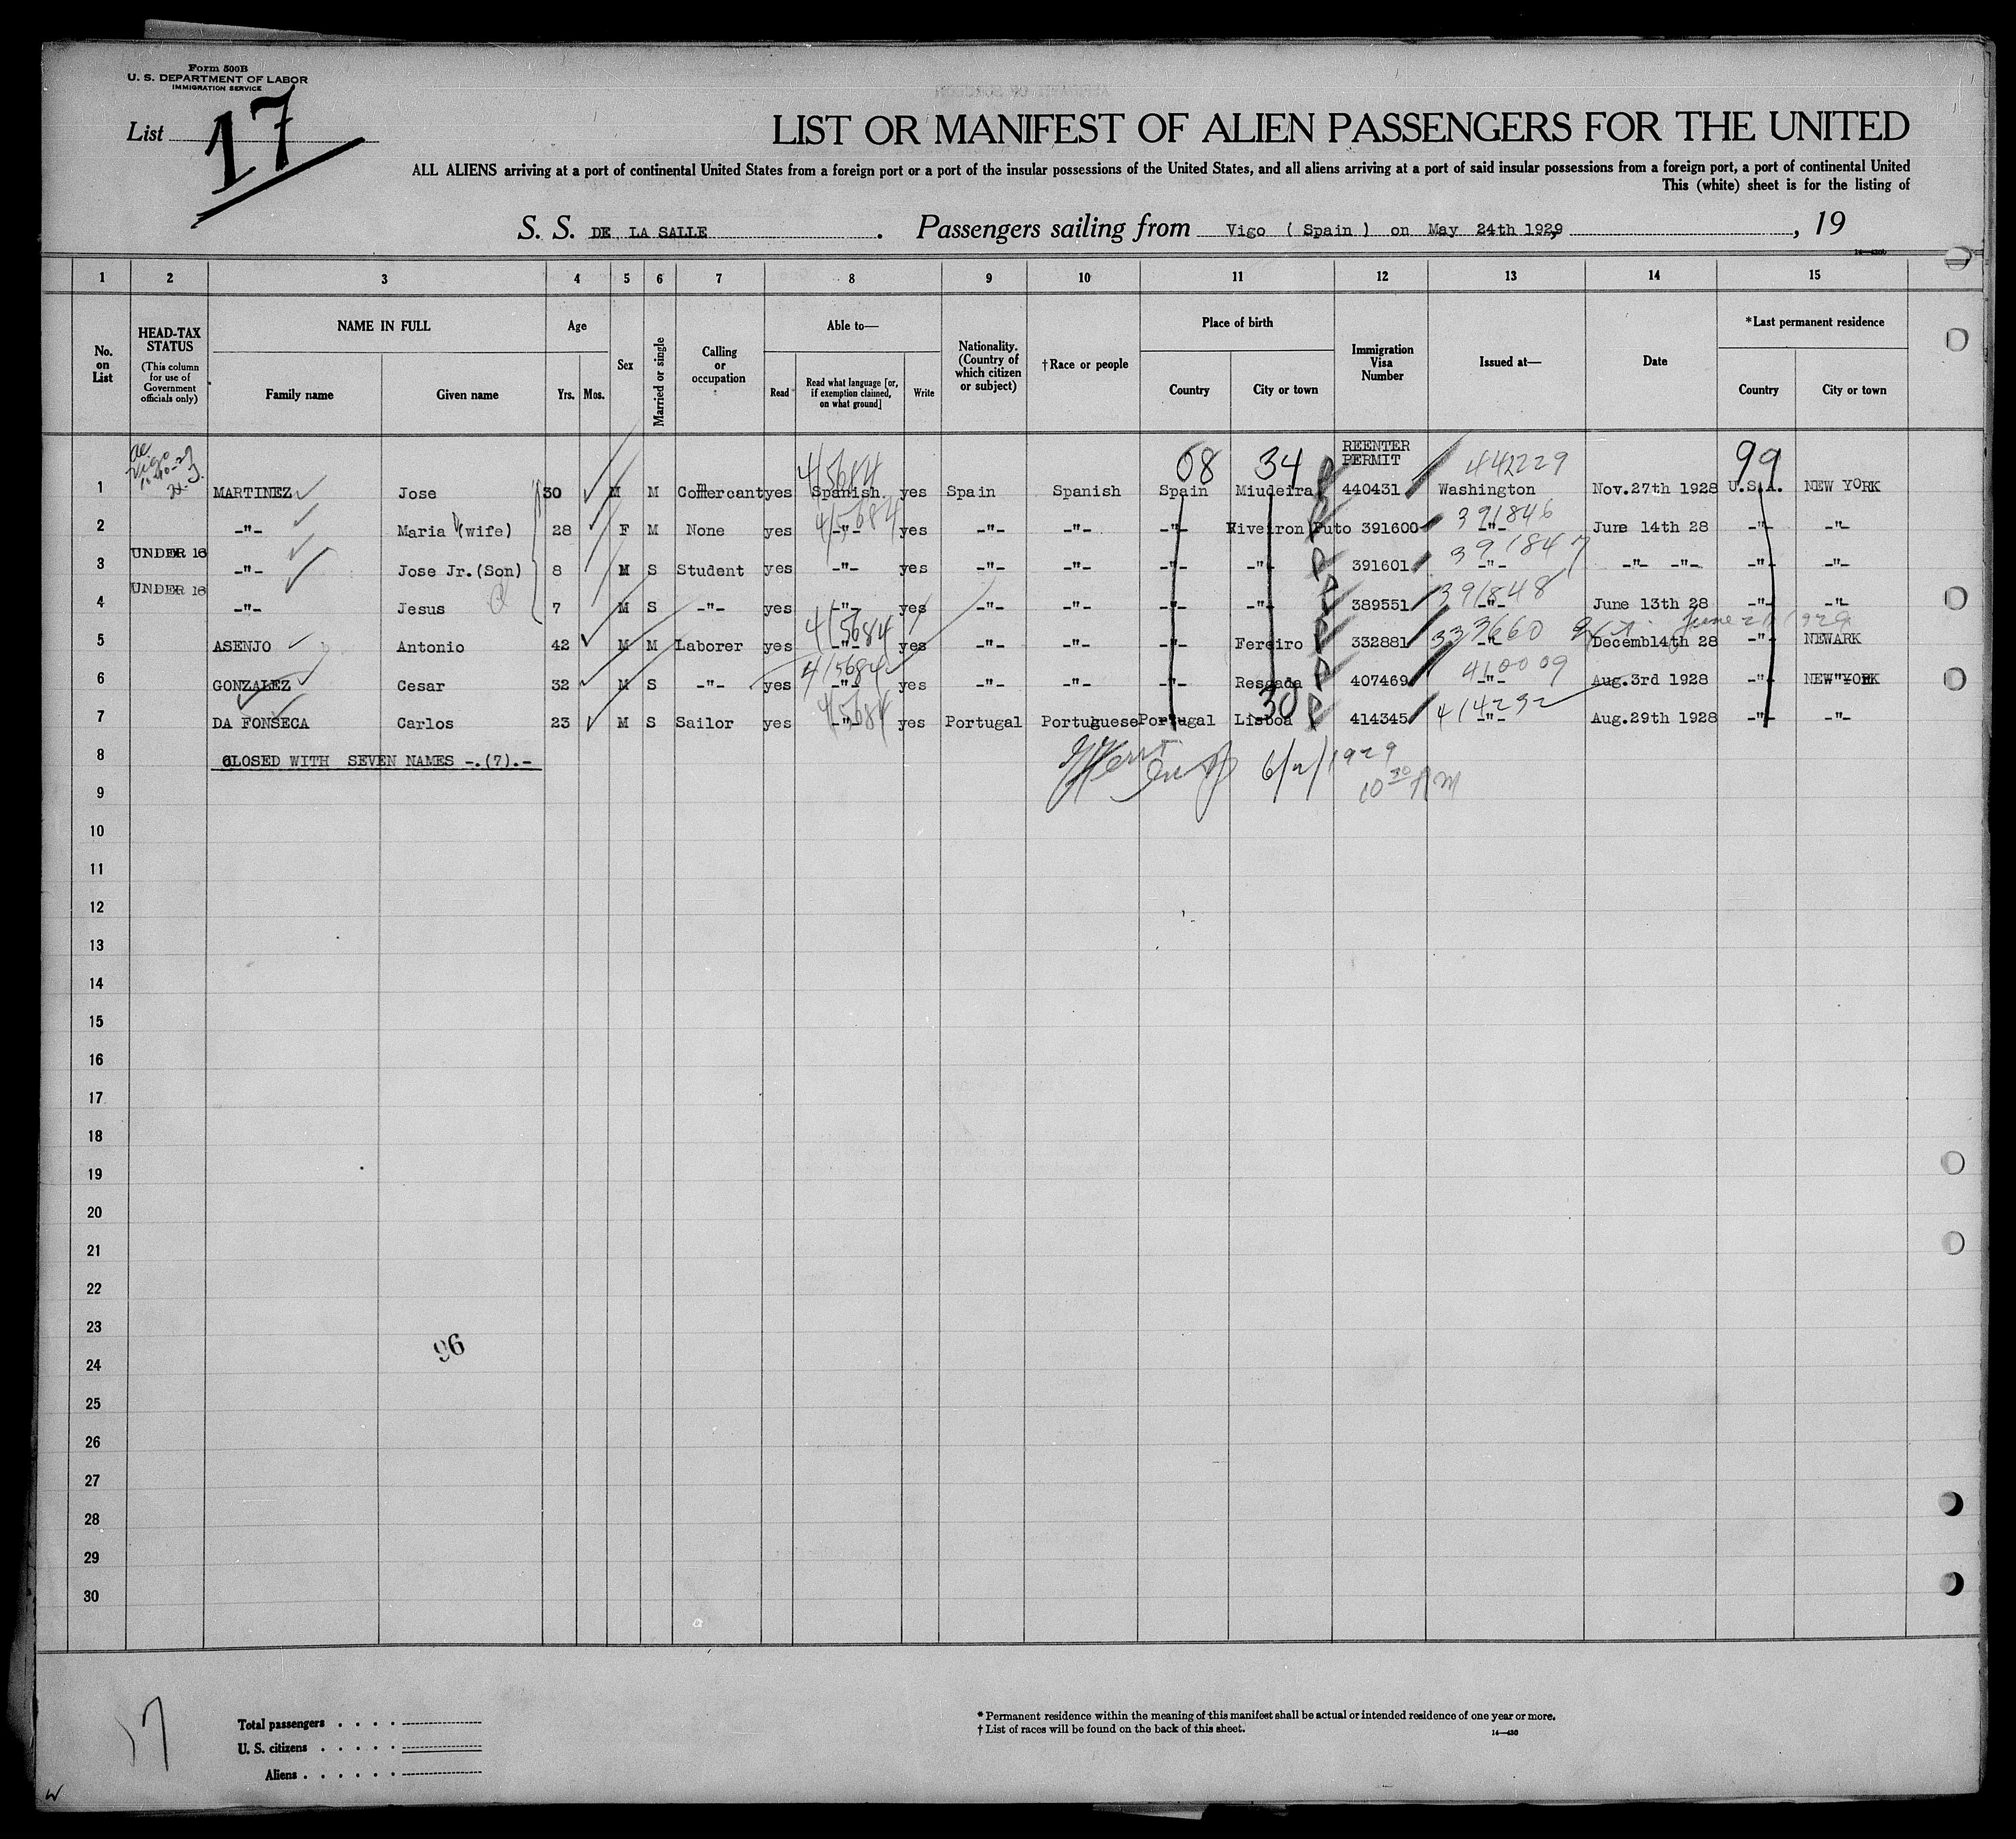 Form 500B
U. S. DEPARTMENT OF LABOR
IMMIGRATION SERVICE
List 17
LIST OR MANIFEST OF ALIEN PASSENGERS FOR THE UNITED
ALL ALIENS arriving at a port of continental United States from a foreign port or a port of the insular possessions of the United States, and all aliens arriving at a port of said insular possessions from a foreign port, a port of continental United
This (white) sheet is for the listing of
S. S. DE LA SALLE. Passengers sailing from Vigo ( Spain ) on May 24th 1929, 19
1 2 3 4 5 6 7 8 9 10 11 12 13 14 15
No. on List
HEAD-TAX STATUS
(This column for use of Government officials only)
NAME IN FULL
Family name
Given name
Age
Yrs. Mos.
Sex
Married or single
Calling or occupation
Able to—
Read
Read what language [or, if exemption claimed, on what ground]
Write
Nationality. (Country of which citizen or subject)
†Race or people
Place of birth
Country
City or town
Immigration Visa Number
Issued at—
Date
*Last permanent residence
Country
City or town
Vigo
08 34 REENTER PERMIT 442229 99
45684
1 MARTINEZ Jose 30 M M Comercant yes Spanish. yes Spain Spanish Spain Miudeira 440431 Washington Nov.27th 1928 U.S.A. NEW YORK
415684 391846
2 -"- Maria (wife) 28 F M None yes -"- yes -"- -"- -"- 391600 -"- June 14th 28 -"- -"-
391847
3 UNDER 16 -"- Jose Jr.(Son) 8 M S Student yes -"- yes -"- -"- -"- -"- 391601 -"- -"- -"- -"- -"-
391848
4 UNDER 16 -"- Jesus 7 M S -"- yes -"- yes -"- -"- -"- -"- 389551 -"- June 13th 28 -"- -"-
415684 333660 June 1929
5 ASENJO Antonio 42 M M Laborer yes -"- yes -"- -"- -"- Fereiro 332881 -"- Decemb14th 28 -"- NEWARK
415684 410009
6 GONZALEZ Cesar 32 M S -"- yes -"- yes -"- -"- -"- Resgada 407469 -"- Aug.3rd 1928 -"- NEW YORK
45684 30 414232
7 DA FONSECA Carlos 23 M S Sailor yes -"- yes Portugal Portuguese Portugal Lisboa 414345 -"- Aug.29th 1928 -"- -"-
8 CLOSED WITH SEVEN NAMES -.(7).-
6/2/1929
10 30 AM
9
10
11
12
13
14
15
16
17
18
19
20
21
22
23
96
24
25
26
27
28
29
30
17
Total passengers
U. S. citizens
Aliens
* Permanent residence within the meaning of this manifest shall be actual or intended residence of one year or more.
† List of races will be found on the back of this sheet.
14—430
W